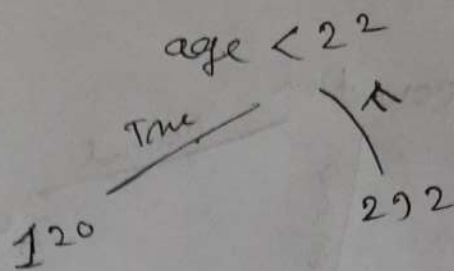 age < 22
True
F
120
292